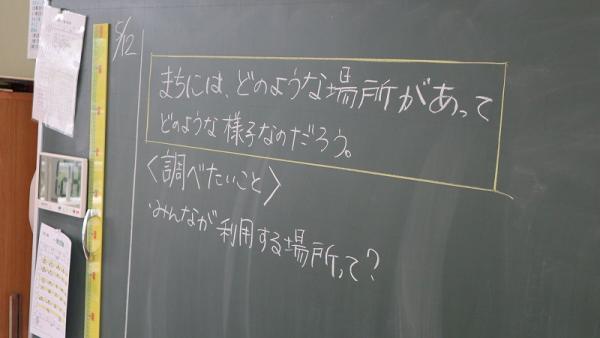 5/12
まちには、どのような場所があって
どのような様子なのだろう。
<調べたいこと>
・みんなが利用する場所って?